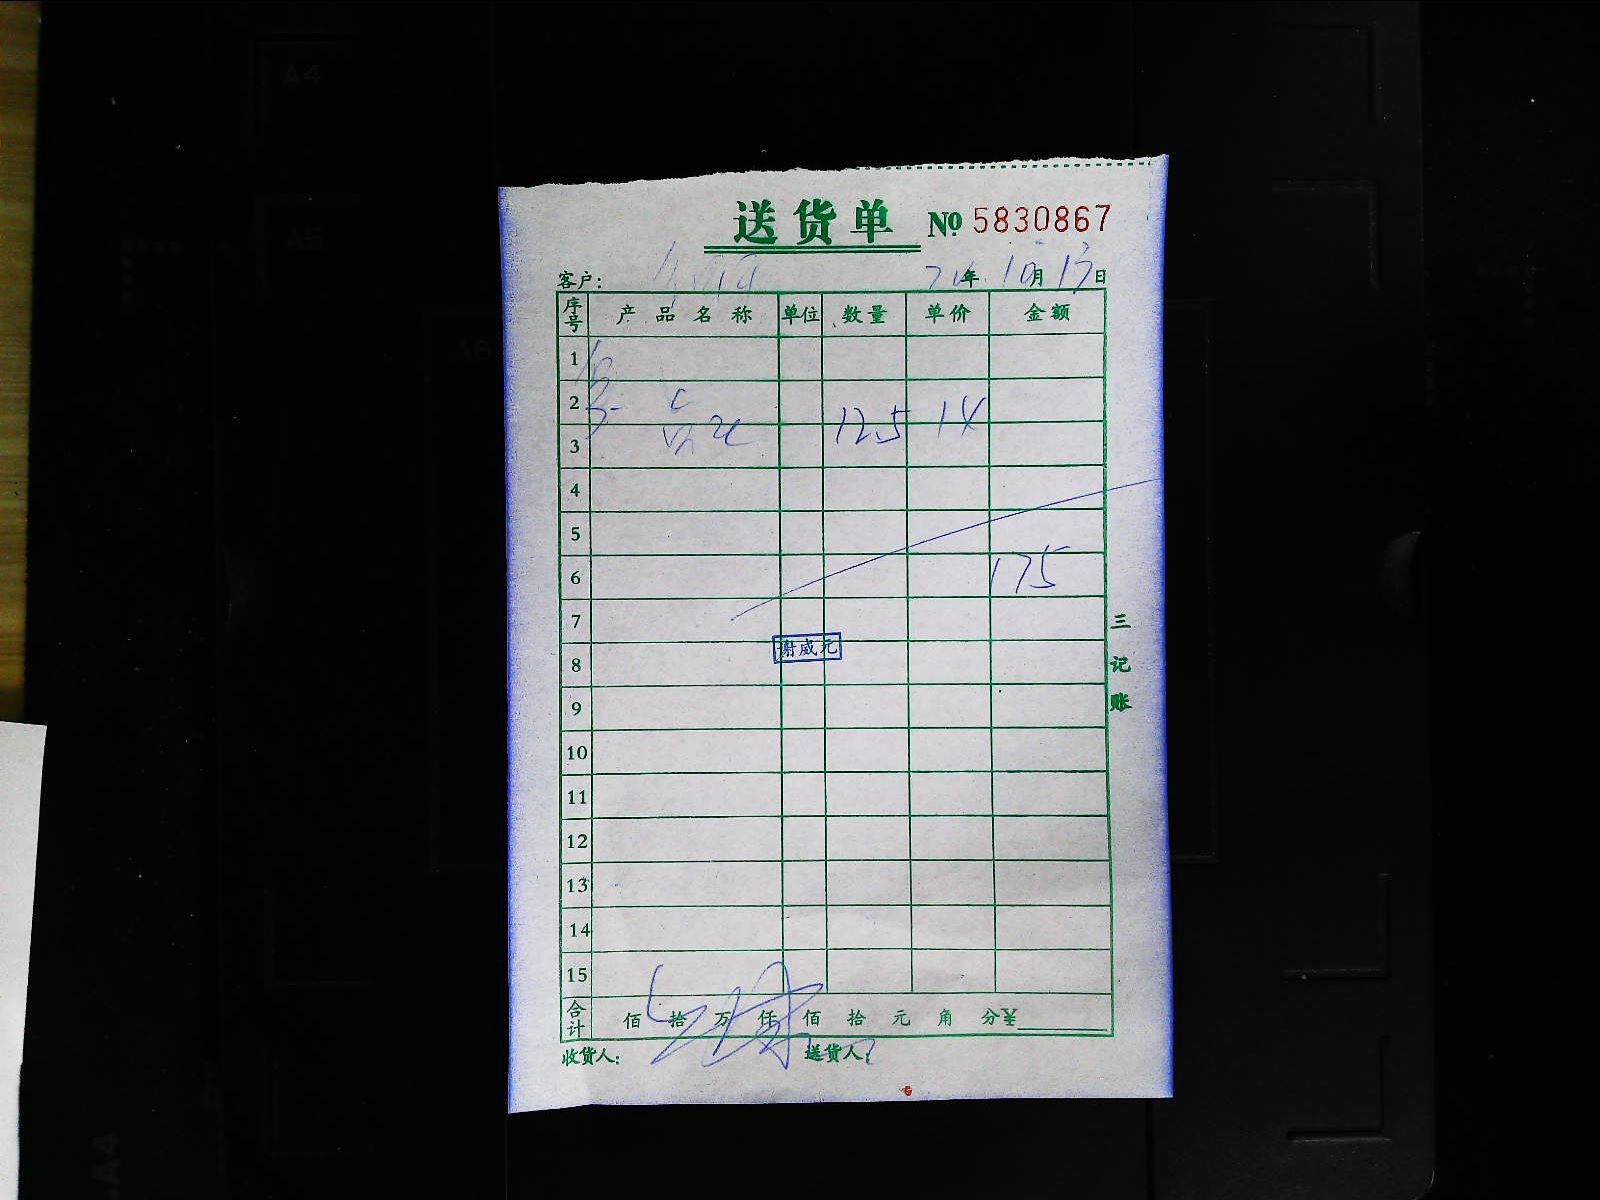 送货单 № 5830867
客户： 年 10月13日
序号 产品名称 单位 数量 单价 金额
1
2
12.5 14
3
4
5
6 175
7
谢威元
8
9
10
11
12
13
14
15
合计 佰 拾 万 仟 佰 拾 元 角 分 ¥
收货人： 送货人：
三记账
A4
A5
A6
A4